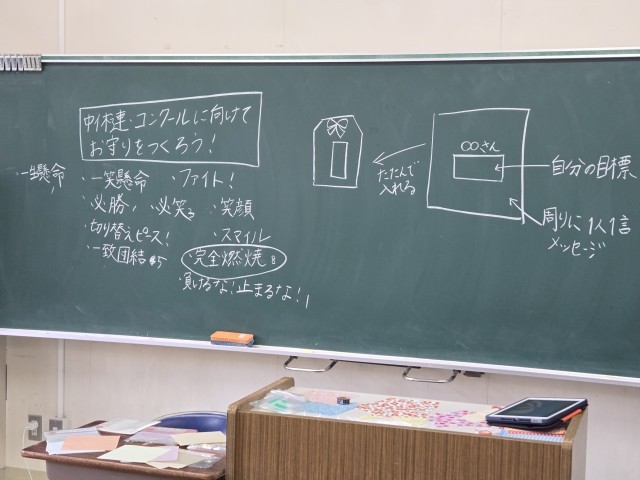 中体連・コンクールに向けて
お守りをつくろう!
一生懸命
・一笑懸命 ・ファイト!
・必勝 ・必笑3 ・笑顔
・切り替えピース! ・スマイル
・一致団結 5 ・完全燃焼 8
・負けるな!止まるな! 1
たたんで
入れる
○○さん
自分の目標
周りに1人1言
メッセージ